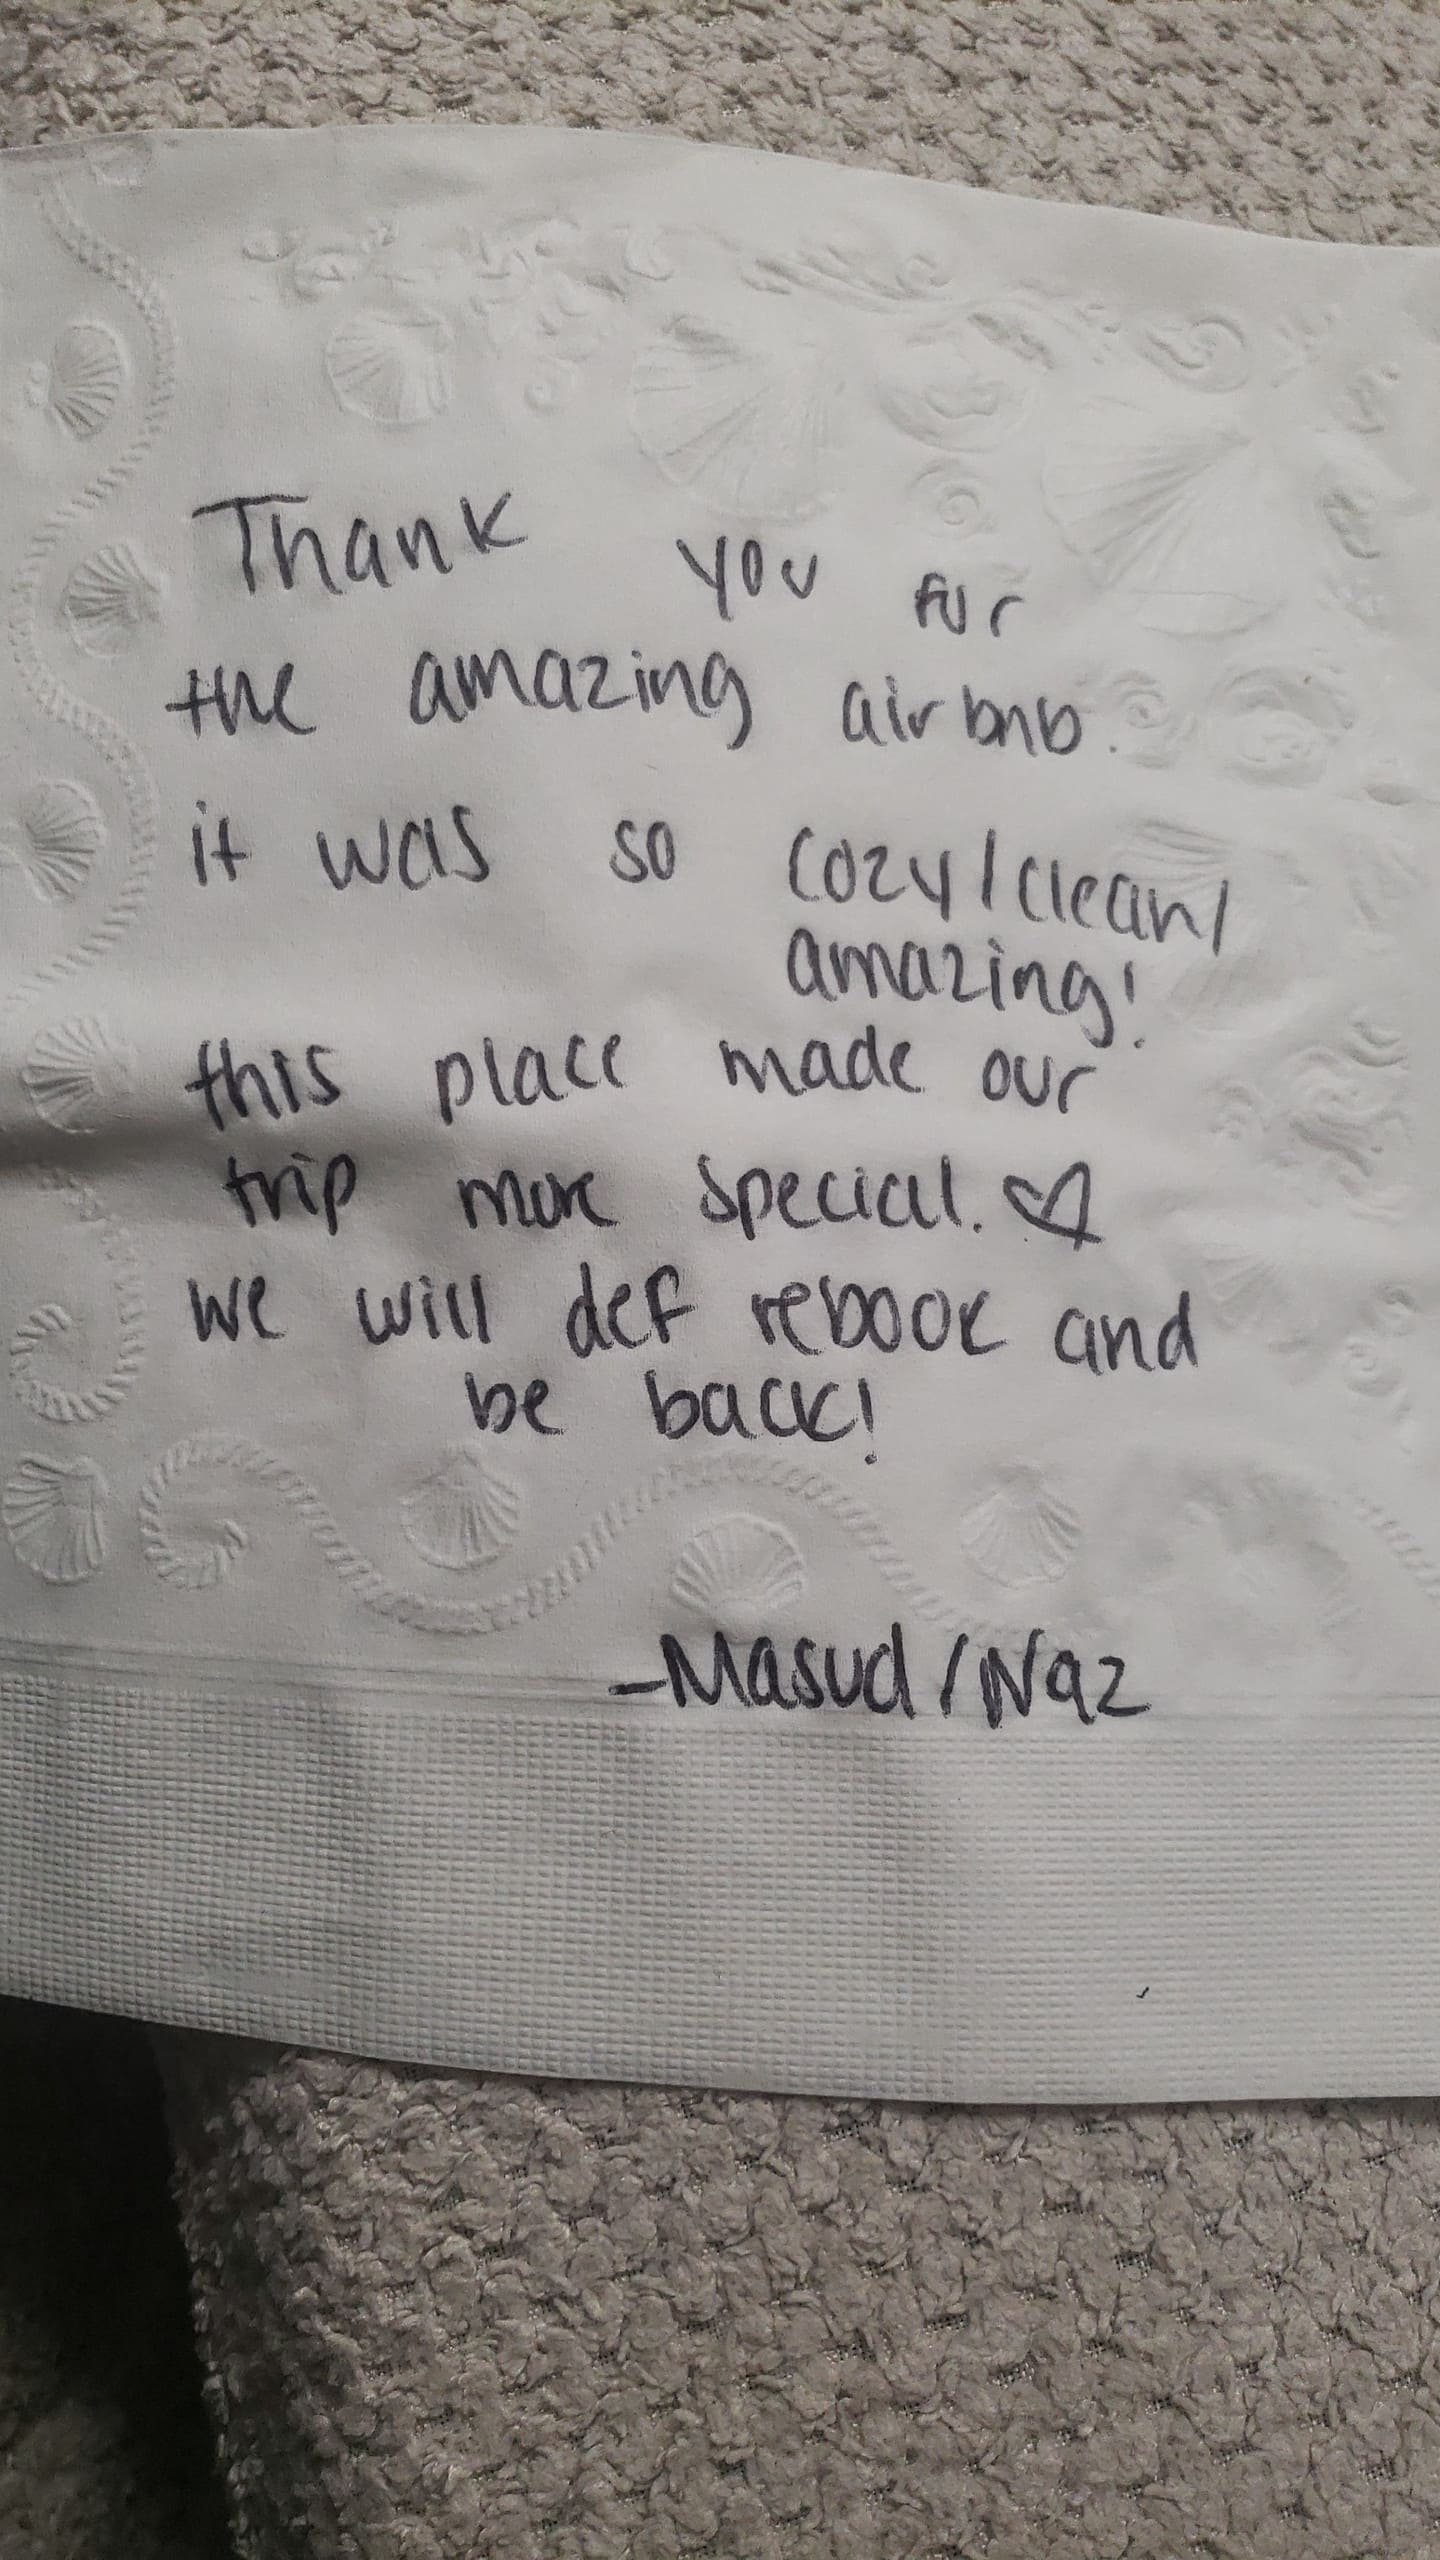 Thank you for
the amazing airbnb.
it was so cozy/clean/
amazing!
this place made our
trip more special. ♡
we will def rebook and
be back!
-Masud/Naz